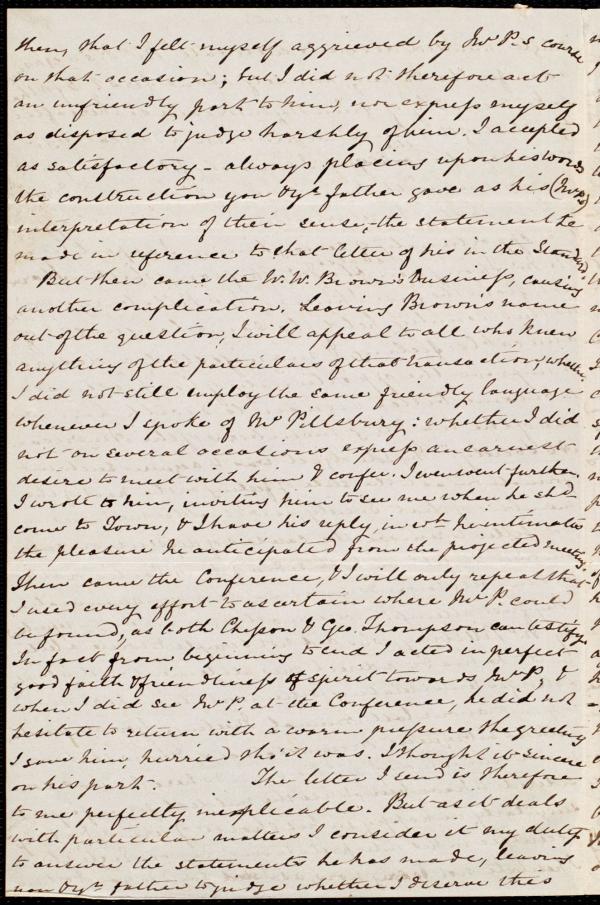 then, that I felt myself aggrieved by Mr P.s course
on that occasion; but I did not therefore act
an unfriendly part to him, nor express myself
as disposed to judge harshly of him. I accepted
as satisfactory - always placing upon his words
the construction you & yr father gave as his (Mr P's)
interpretation of their sense, - the statement he
made in reference to that letter of his in the Standard.
But then came the W. W. Brown's business, causing
another complication. Leaving Brown's name
out of the question, I will appeal to all who knew
anything of the particulars of that transaction, whether
I did not still employ the same friendly language
whenever I spoke of Mr Pillsbury: whether I did
not on several occasions express an earnest
desire to meet with him & confer. I even went further.
I wrote to him, inviting him to see me when he shd
come to Town, & I have his reply, in wh he intimates
the pleasure he anticipated from the projected meeting.
Then came the Conference, & I will only repeat that
I used every effort to ascertain where Mr P. could
be found, as both Chesson & Geo. Thompson can testify.
In fact from beginning to end I acted in perfect
good faith & friendliness of spirit towards Mr P, &
when I did see Mr P. at the Conference, he did not
hesitate to return with a warm pressure the greeting
I gave him, hurried tho' it was. I thought it sincere
on his part. The letter I send is therefore
to me perfectly inexplicable. But as it deals
with particular matters I consider it my duty
to answer the statements he has made, leaving
you & yr father to judge whether I deserve this